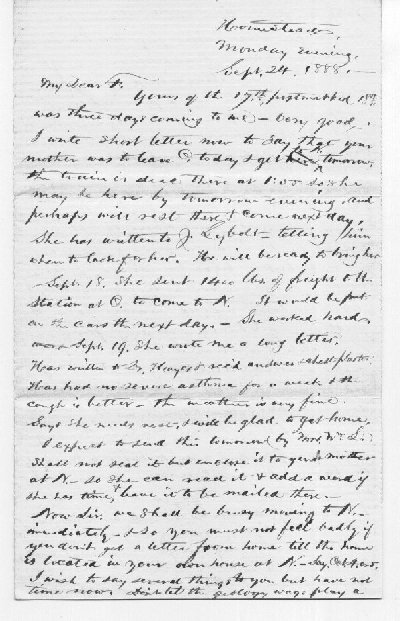 Homesteader,
Monday evening,
Sept. 24, 1888. —
My dear F.
Yours of the 17th, postmarked 18th
was three days coming to me — very good.
I write short letter now to say that your
mother was to leave O. today & get here tomorrow,
the train is due there at 1:05 so she
may be here by tomorrow evening, and
perhaps will rest there & come next day,
She has written to J. Lybolt — telling him
when to look for her. He will be ready to bring her
— Sept. 18. She sent 1400 lbs. of freight to the
Station at O. to come to N. It would be put
on the cars the next day. — She worked hard,
Sept. 19. She wrote me a long letter.
Has written to Dr. & rec'd answer
Has had no severe asthma for a week & the
cough is better — the weather is very fine.
Says she needs rest, & will be glad to get home,
I expect to send this tomorrow by Mr.
Shall not seal it but enclose it to your mother
at N. — so she can read it & add a word if
she has time, & leave it to be mailed there —
Now Sir, we shall be busy moving to N. —
immediately — & so you must not feel badly if
you don't get a letter from home till the home
is located in your own house at N. — Say, Oct.
I wish to say several things to you but have not
time now. Don't let the geology wage play a